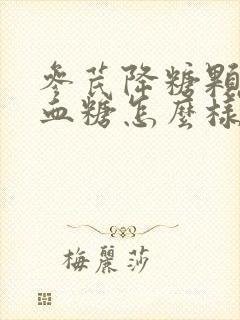 參芪降糖顆
血糖怎麼樣
梅麗莎